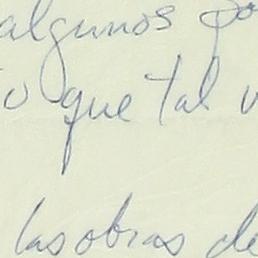 algunos
que tal
las obras de